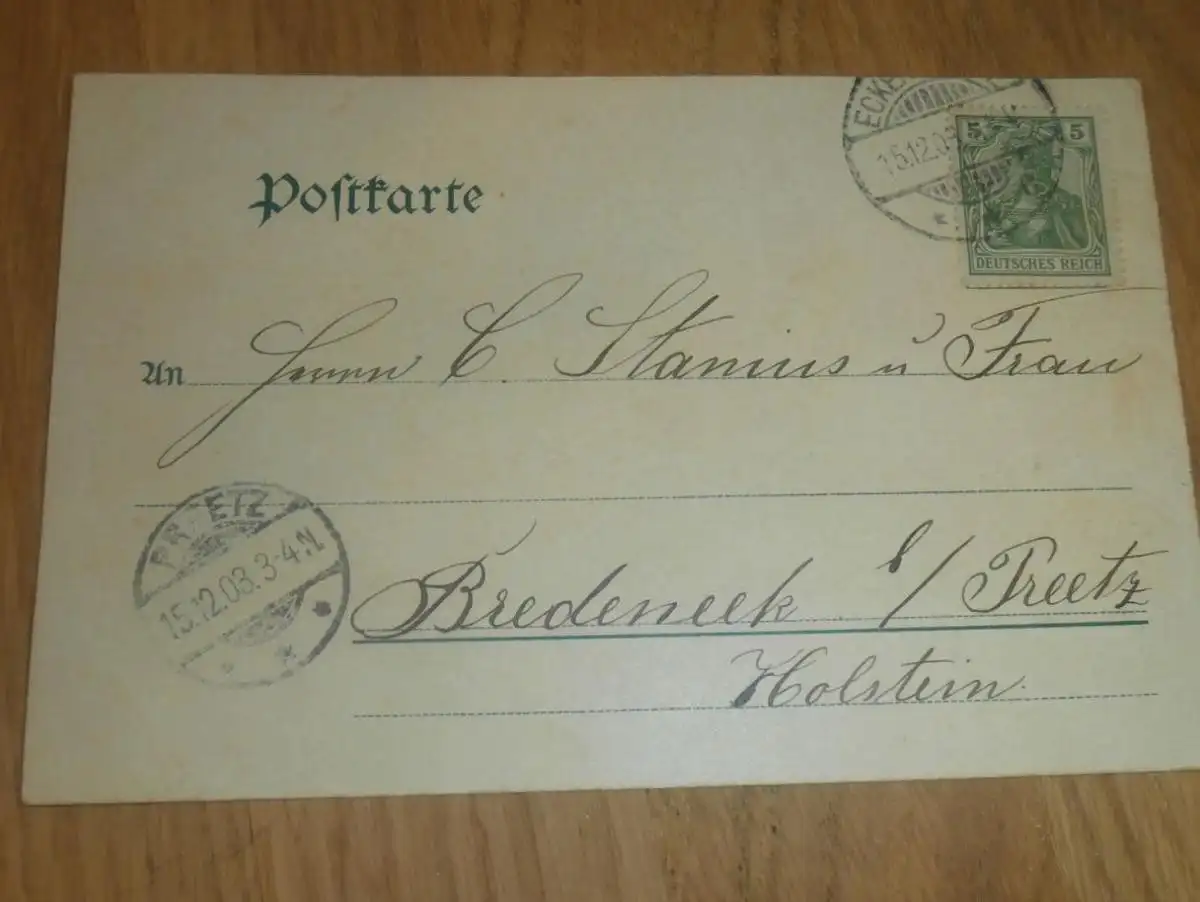 Postkarte
15.12.03
5 5
DEUTSCHES REICH
An Herrn C. Stamius u Frau
PREETZ
15.12.03.3-4.N.
Bredeneek b/Preetz
Holstein.